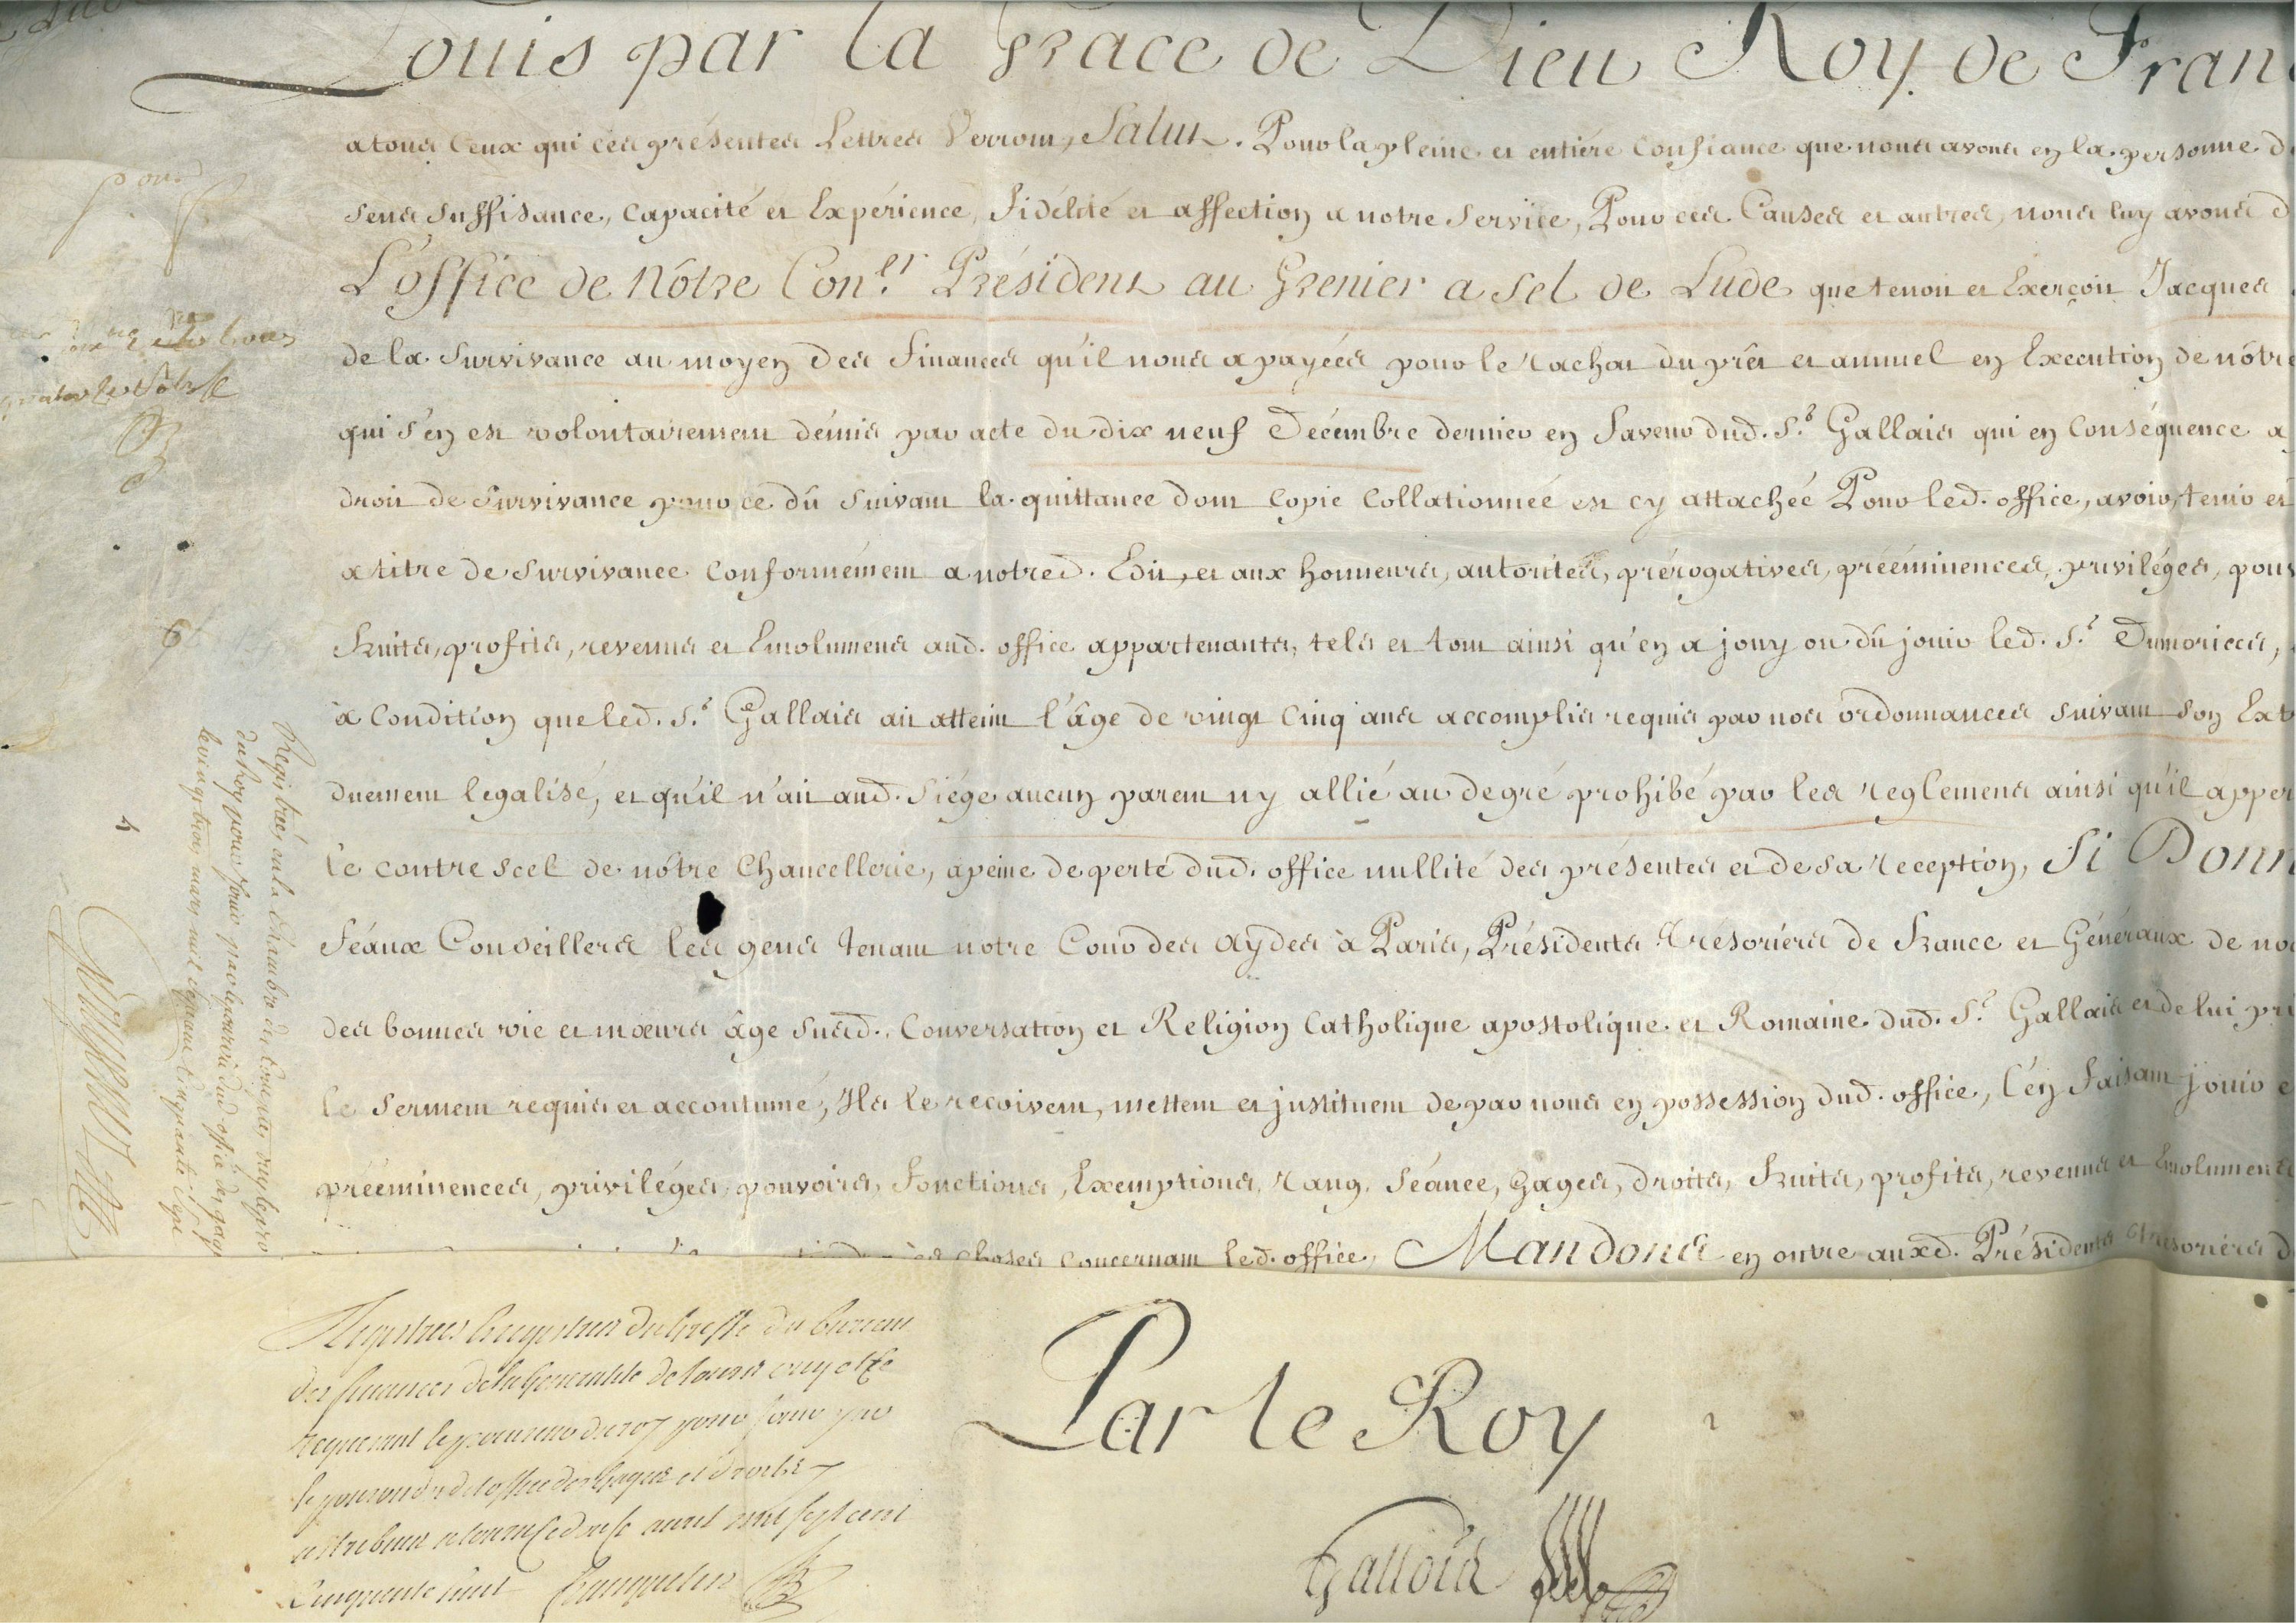 Louis par la Grace de Dieu Roy de Fran
a tous Ceux qui ces présentes Lettres Verront, Salut. Pour la pleine et entiére Confiance que nous avons en la personne d
sens suffisance, Capacité et Expérience, fidélité et affection a notre Service, Pour ces Causes et autres, nous luy avons d
L'office de Nôtre Con.er Président au Grenier a Sel de Lude que tenoit et Exerçoit Jacques
de la Survivance au moyen des finances qu'il nous a payées pour le rachat du prêt et annuel en Execution de nôtre
qui s'en est volontairement démis par acte du dix neuf Décembre dernier en faveur dud. S.r Gallais qui en Conséquence a
droit de Survivance pour ce dû suivant la quittance dont Copie Collationnée est cy attachée Pour led. office, avoir, tenir et
a titre de Survivance Conformément a notred. Edit, et aux honneurs, autorités, prérogatives, prééminences, priviléges, pouv
fruits, profits, revenus et Emolumens aud. office appartenants, tels et tout ainsi qu'en a jouy ou dû jouir led. S.r Dumorices,
à Condition que led. S.r Gallais ait atteint l'âge de vingt Cinq ans accomplis requis par nos ordonnances suivant son Ext
duement legalisé, et qu'il n'ait aud. Siége aucun parent ny allié au degré prohibé par les reglemens ainsi qu'il apper
le contre scel de nôtre Chancellerie, a peine de perte dud. office nullité des présentes et de sa reception, Si Donn
féaux Conseillers les gens tenant notre Cour des Aydes à Paris, Présidents Trésoriers de France et Généraux de nos
des bonnes vie et mœurs âge susd. Conversation et Religion Catholique apostolique et Romaine dud. S.r Gallais et de lui pri
le Serment requis et accoutumé, Ils le reçoivent, mettent et instituent de par nous en possession dud. office, l'en faisant jouir e
prééminences, priviléges, pouvoirs, fonctions, Exemptions, rang, séance, Gages, droits, fruits, profits, revenus et Emolumens
es choses concernant led. office, Mandons en outre auxd. Présidents Trésoriers d
Registrées en la Chambre des Comptes, ouy le pro
du Roy pour jouir par le pourvû dud. office des gages
le vingt trois mars mil sept cent cinquante sept
Registrées Es registres du Greffe du bureau
des finances de la Generalité de Tours ouy et ce
requerant le procureur du roy pour jouir par
le pourvu de l'office des Gages et droits y
attribues a tours ce douze avril mil sept cent
Cinquante huit
Par le Roy
Gallois